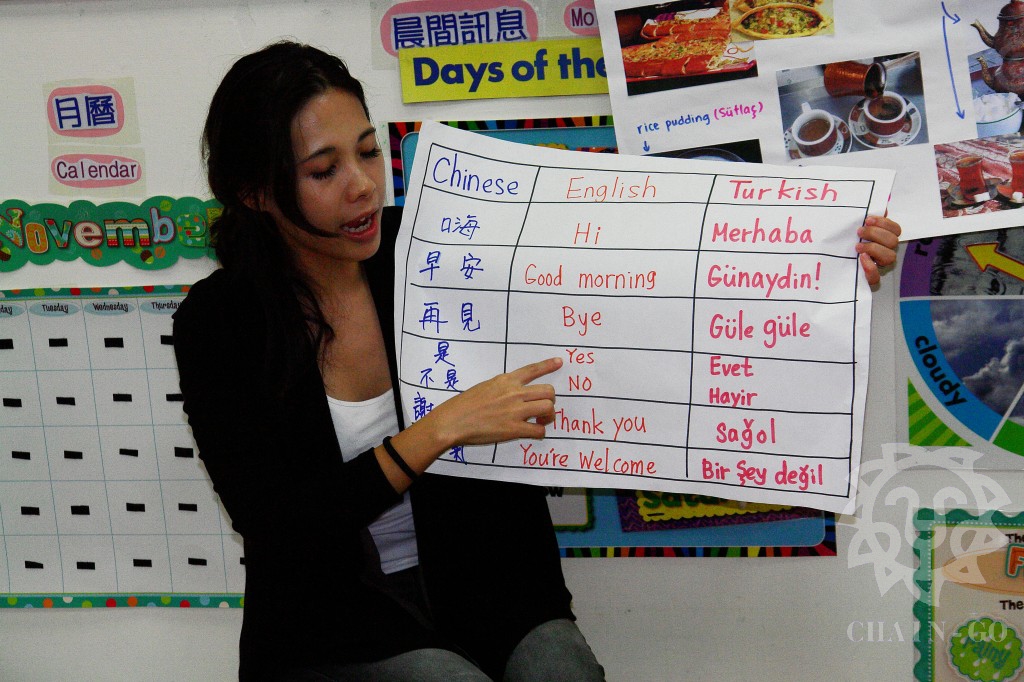 晨間訊息
Mo
Days of the
月曆
Calendar
rice pudding (Sütlaç)
November
Tuesday Wednesday Thursday
Chinese English Turkish
嗨 Hi Merhaba
早安 Good morning Günaydin!
再見 Bye Güle güle
是 Yes Evet
不是 NO Hayir
謝 Thank you Sağol
You're Welcome Bir Şey değil
cloudy
The
The
Rainy
CHAIN-GO